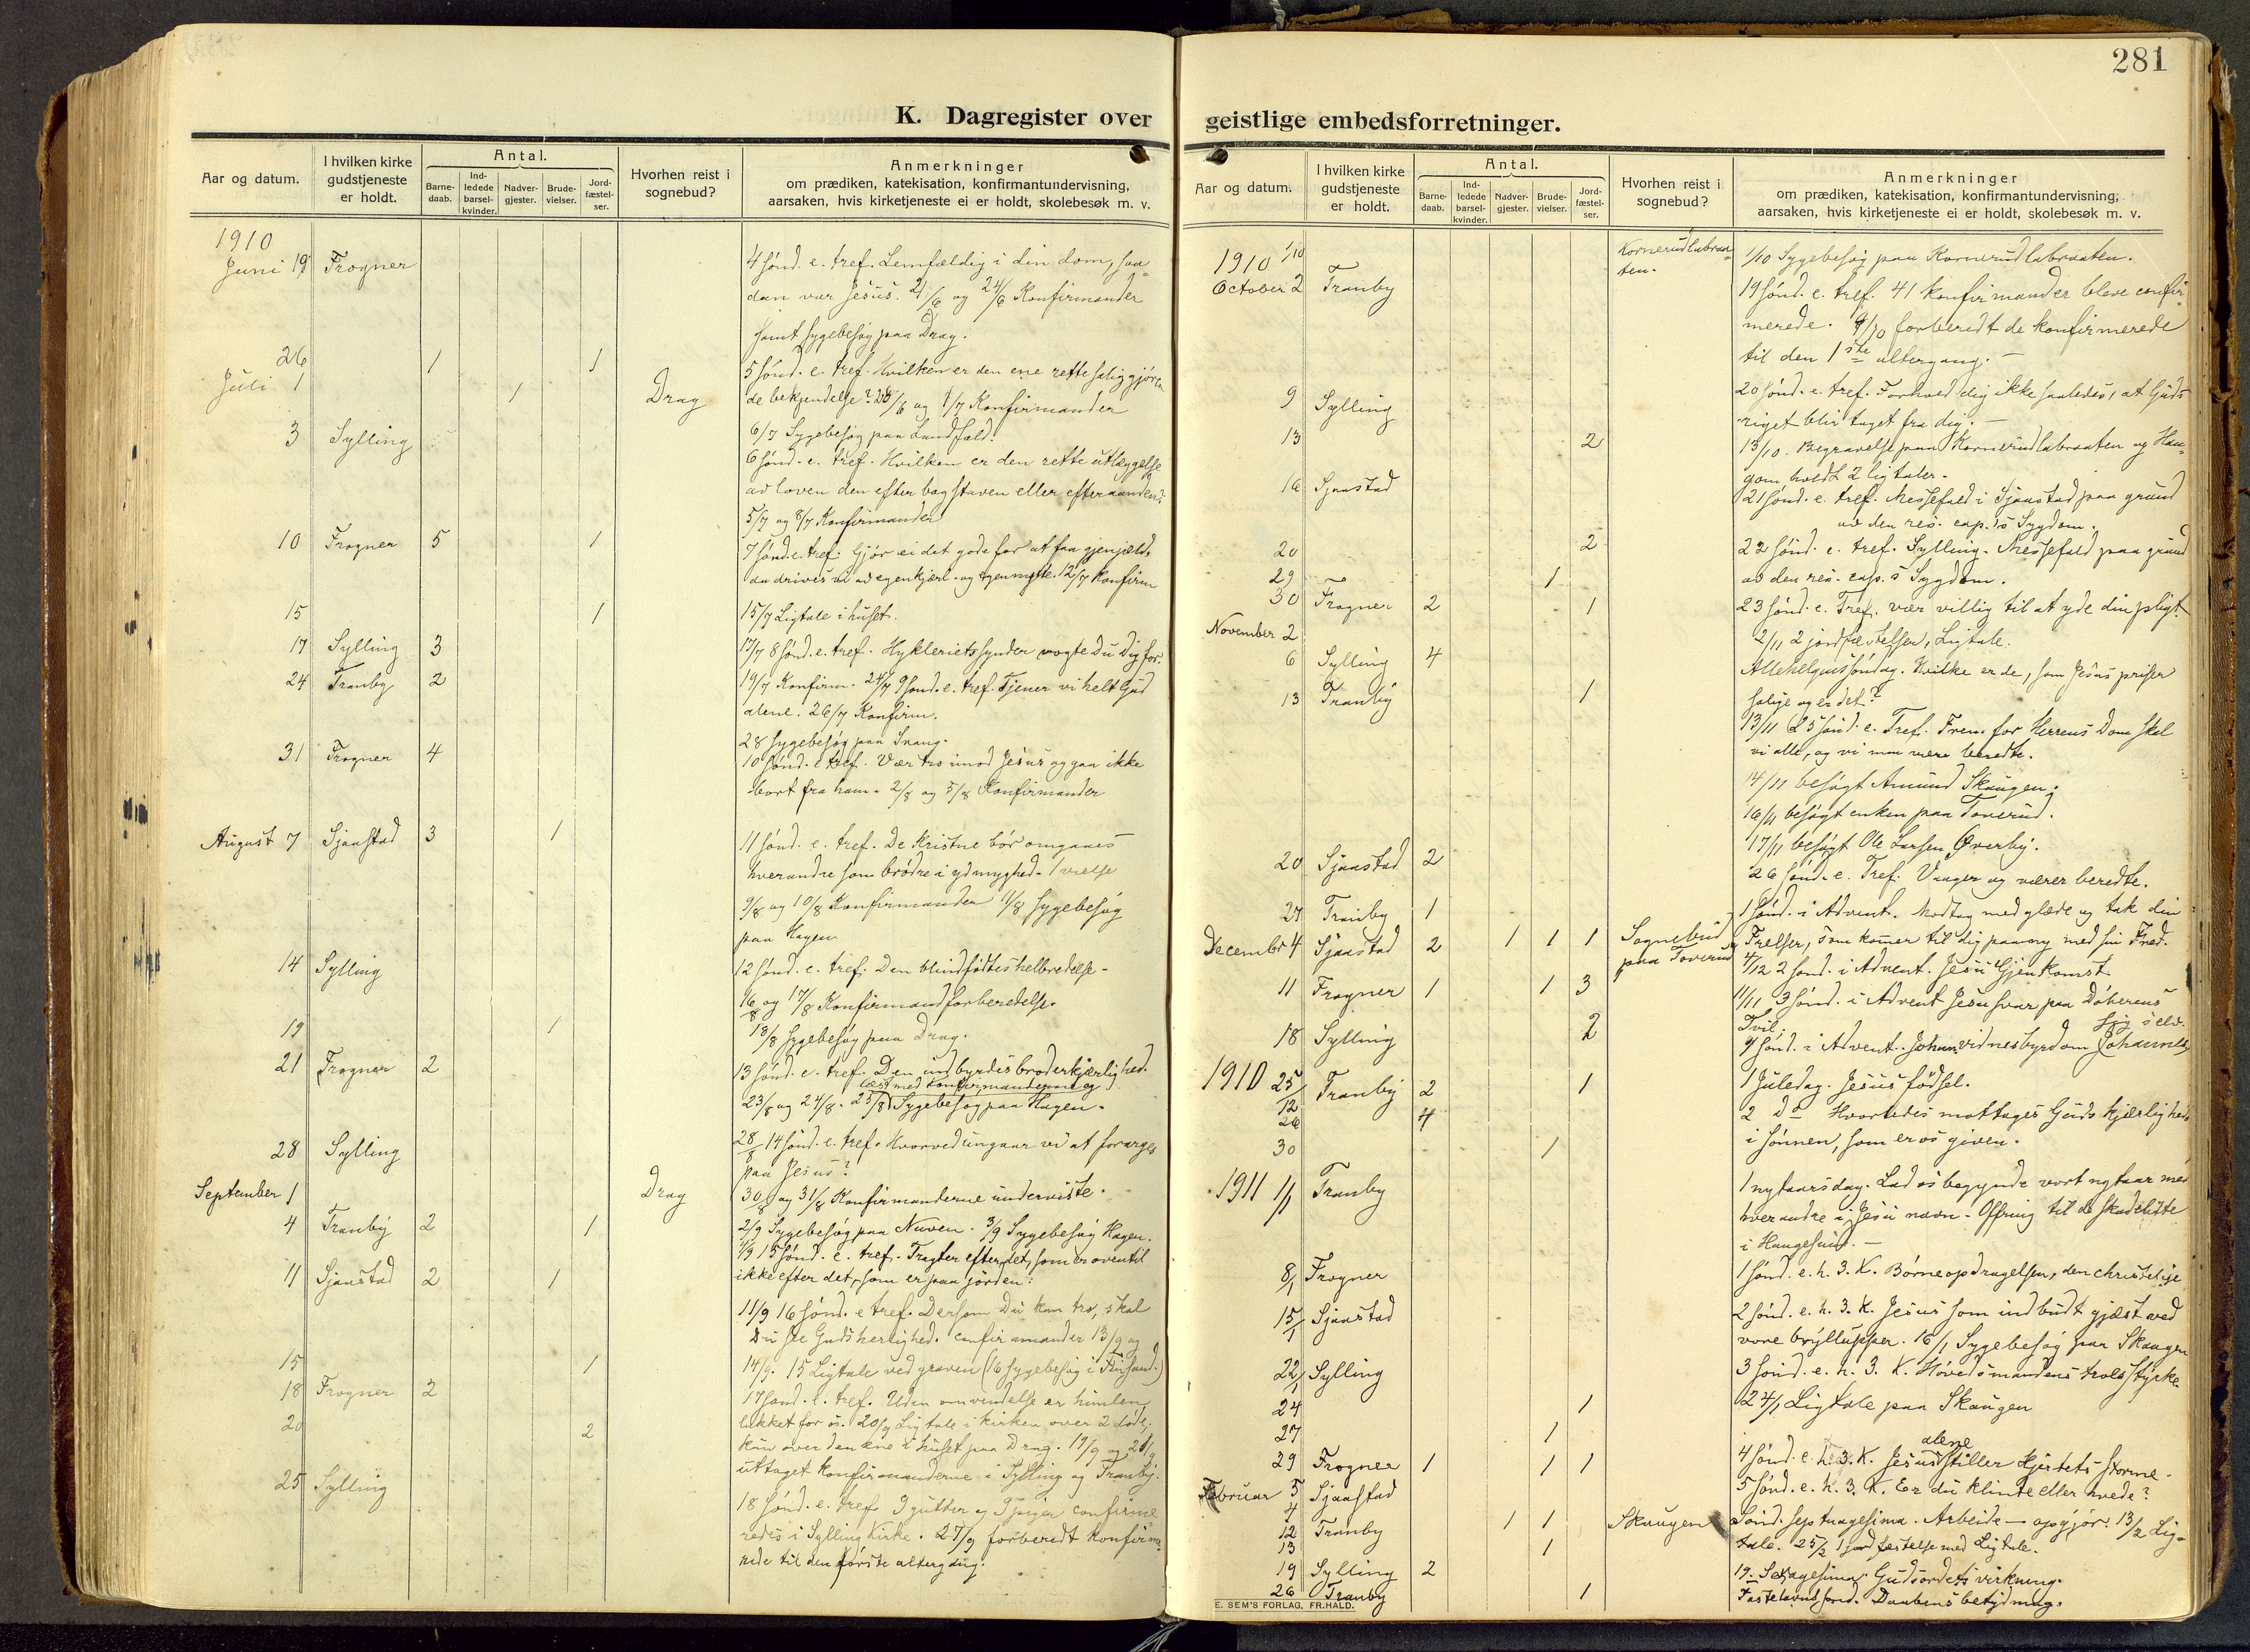 281
K. Dagregister over
Aar og datum.
I hvilken kirke
gudstjeneste
er holdt.
Antal.
Barne-
daab.
Ind-
ledede
barsel-
kvinder.
Nadver-
gjester.
Brude-
vielser.
Jord-
fæstel-
ser.
Hvorhen reist i
sognebud?
Anmerkninger
om prædiken, katekisation, konfirmantundervisning,
aarsaken, hvis kirketjeneste ei er holdt, skolebesøk m. v.
1910
Juni 19 Frogner 4 sønd. e. tref. Lemfældig i din dom, saa-
dan var Jesus. 21/6 og 24/6 Konfirmander
samt sygebesøg paa Drag.
26 1 1 5 sønd. e. tref. Hvilken er den ene rette saliggjøren-
Juli 1 1 Drag de bekjendelse? 28/6 og 1/7 Konfirmander
3 Sylling 6/7 Sygebesøg paa Landfald.
6 sønd. e. tref. Hvilken er den rette utlæggelse
av loven den efter bogstaven eller efter aanden?
5/7 og 8/7 Konfirmander
10 Frogner 5 1 7 sønd. e. tref. Gjør ei det gode for at faa gjenjæld,
da drives vi av egenkjærl. og egennytte. 12/7 Konfirm
15 1 15/7 Ligtale i huset.
17 Sylling 3 17/7 8 sønd. e. tref. Hykleriets synder vogte Du Dig for.
24 Tranby 2 19/7 Konfirm. 24/7 9 sønd. e. tref. Tjener vi helt Gud
alene. 26/7 Konfirm.
28 sygebesøg paa Svang.
31 Frogner 4 10 sønd. e. tref. Vær tro imod Jesus og gaa ikke
bort fra ham. 2/8 og 5/8 Konfirmander
August 7 Sjaastad 3 1 11 sønd. e. tref. De Kristne bør omgaaes
hverandre som brødre i ydmyghed. 1 vielse
9/8 og 10/8 Konfirmander 11/8 sygebesøg
paa Hagen
14 Sylling 12 sønd. e. tref. Den blindfødtes helbredelse.
16 og 17/8 Konfirmandforberedelse.
19 1 18/8 sygebesøg paa Drag.
21 Frogner 2 13 sønd. e. tref. Den indbyrdes broderkjærlighed.
læst med konfirmanderne og
23/8 og 24/8. 25/8 Sygebesøg paa Hagen.
28 Sylling 28/8 14 sønd. e. tref. Hvorved undgaar vi at forarges
paa Jesus?
September 1 Drag 30/8 og 31/8 Konfirmanderne underviste.
4 Tranby 2 1 2/9 Sygebesøg paa Nuven. 3/9 Sygebesøg Hagen.
4/9 15 sønd. e. tref. Tragter efter det, som er oventil
11 Sjaastad 2 1 ikke efter det, som er paa jorden.
11/9 16 sønd. e tref. Dersom Du kan tro, skal
Du se Guds herlighed. confirmander 13/9 og
15 1 14/9. 15 Ligtale ved graven (16 sygebesøg i
18 Frogner 2 17 sønd. e. tref. Uden omvendelse er himlen
20 2 lukket for os. 20/9 Ligtale i kirken over 2 døde,
kun over den ene i huset paa Drag. 19/9 og 21/9
uttaget konfirmanderne i Sylling og Tranby.
25 Sylling 18 sønd. e. tref. 9 gutter og 9 piger confirme-
redes i Sylling Kirke. 27/9 forberedt konfirme-
rede til den første altergang.
geistlige embedsforretninger.
Aar og datum.
I hvilken kirke
gudstjeneste
er holdt.
Antal.
Barne-
daab.
Ind-
ledede
barsel-
kvinder.
Nadver-
gjester.
Brude-
vielser.
Jord-
fæstel-
ser.
Hvorhen reist i
sognebud?
Anmerkninger
om prædiken, katekisation, konfirmantundervisning,
aarsaken, hvis kirketjeneste ei er holdt, skolebesøk m. v.
1910 1/10 Kornerudlabraa-
ten. 1/10 Sygebesøg paa Kornerudlabraaten.
October 2 Tranby 19 sønd. e. tref. 41 konfirmander bleve confir-
merede. 4/10 forberedt de konfirmerede
til den 1ste altergang. —
9 Sylling 20 sønd. e. tref. Forhold dig ikke saaledes, at Guds
riget blir taget fra dig. —
13 2 13/10. Begravelse paa Kornerudlabraaten og Hau-
gom, holdt 2 ligtaler.
16 Sjaastad 21 sønd. e. tref. Messefald i Sjaastad paa grund
av den res. cap.'s Sygdom.
20 2 22 sønd. e. tref. Sylling. Messefald paa grund
29 1 av den res. cap.s Sygdom.
30 Frogner 2 1 23 sønd. e. Tref. vær villig til at yde din pligt.
November 2 2/11 2 jordfæstelser, Ligtale.
6 Sylling 4 Allehelgenssøndag. Hvilke er de, som Jesus priser
salige og er det?
13 Tranby 1 13/11 25 sønd. e. Tref. Frem for Herrens Dom skal
vi alle, og vi maa være beredte.
14/11 besøgt Amund Skaugen.
16/11 besøgt enken paa Toverud.
17/11 besøgt Ole Larsen Øverby.
20 Sjaastad 2 26 sønd. e. Tref. Vaager og værer beredte.
27 Tranby 1 1 sønd. i Advent. Modtag med glæde og tak din
December 4 Sjaastad 2 1 1 1 Sognebud
paa Toverud Frelser, som kommer til dig paany med sin Fred.
4/12 2 sønd. i Advent. Jesu Gjenkomst.
11 Frogner 1 1 3 11/11 3 sønd. i Advent Jesu svar paa Døberens
Tvil.
18 Sylling 2 4 sønd. i Advent. Johan. vidnesbyrd om sig selv.
1910 25/12 Tranby 2 1 1 Juledag. Jesus fødsel.
26 4 2 Do Hvorledes mottages Guds kjærlighed
30 1 i sønnen, som er os given.
1911 1/1 Tranby 1 nytaarsdag. Lad os begynde vort nytaar med
hverandre i Jesu navn. Offring til de skadelidte
i Haugesund. —
8/1 Frogner 1 sønd. e. h. 3. K. Børneopdragelsen, den christelige
15/1 Sjaastad 2 sønd. e. h. 3. K. Jesus som indbudt gjæst ved
vore bryllupper. 16/1 Sygebesøg paa Skaugen
22/1 Sylling 3 sønd. e. h. 3. K. Høvedsmandens troes styrke.
24 1 24/1 Ligtale paa Skaugen
27 1
29 Frogner 1 1 1 4 sønd. e. h. 3. K. Jesus alene stiller Hjertets storme.
Februar 5 Sjaastad 5 sønd. e. h. 3. K. Er du klinte eller hvede?
12 Tranby 1 1 Skaugen Sønd. septuagesima. Arbeide — opgjør. 13/2 Lig-
13 1 tale. 25/2 1 jordfæstelse med Ligtale.
19 Sylling 2 19. Sexagesima. Gudsordets virkning.
26 Tranby 1 Fastelavnssønd. Daabens betydning.
E. SEM'S FORLAG, FR.HALD.